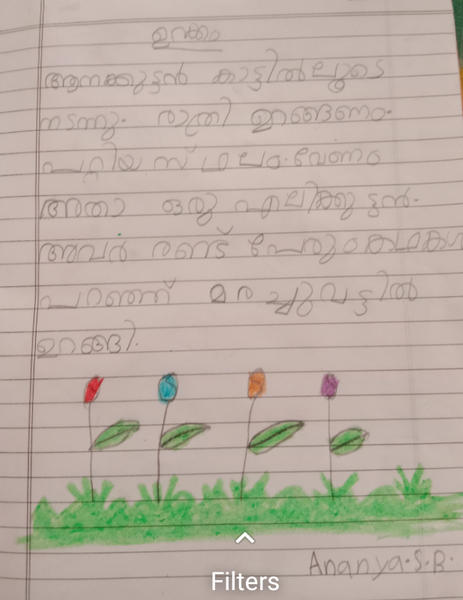 ഉറക്കം
ആനക്കുട്ടൻ കാട്ടിൽലൂടെ
നടന്നു. രാത്രി ഉറങ്ങണം.
പറ്റിയ സ്ഥലം വേണം
അതാ ഒരു എലിക്കുട്ടൻ.
അവർ രണ്ട് പേരും കഥകൾ
പറഞ്ഞ് മരച്ചുവട്ടിൽ
ഉറങ്ങി.
Ananya.S.B.
Filters